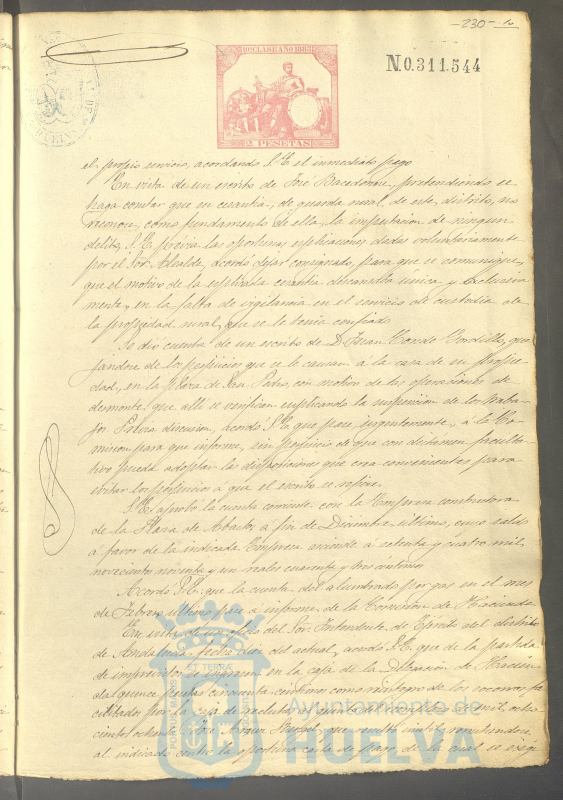 -230-
10ª CLASE AÑO 1883
N.0.311.544
2 PESETAS
el propio servicio, acordando S.E. el inmediato pago
En vista de un escrito de José pretendiendo se
haga constar que su cesantia, de guarda rural, de este distrito, no
reconoce, como fundamento de ella, la imputacion de ningun
delito, S.E. previa las oportunas esplicaciones dadas voluntariamente
por el Sor. Alcalde, acordó dejar consignado, para que se comunique,
que el motivo de la esplicada cesantia descansa única y esclusiva
mente, en la falta de vigilancia en el servicio de custodia de
la propiedad rural, que se le tenia confiado.
Se dió cuenta de un escrito de D. Juan Conde Gordillo, que
jandose de los perjuicios que se le causan á la casa de su propie
dad, en la plaza de San Pedro, con motivo de las operaciones de
desmonte, que alli se verifican suplicando la suspension de los traba
jos. Prévia discusion, acordó S.E. que pase, urgentemente, á la Co
mision para que informe, sin perjuicio de que con dictamen faculta
tivo pueda adoptar las disposiciones que crea convenientes para
evitar los perjuicios a que el escrito se refiere.
S.E. aprobó la cuenta corriente con la Empresa constructora
de la Plaza de Abastos á fin de Diciembre último, cuyo saldo
á favor de la indicada Empresa asciende á setenta y cuatro mil
novecientos noventa y un reales cuarenta y tres centimos.
Acordó S.E. que la cuenta del alumbrado por gas en el mes
de Febrero último, pase a informe de la Comision de Hacienda
En vista de un oficio del Sor. Intendente de Ejercito del distrito
de Andalucia, fecha dos del actual, acordó S.E. que de la partida
de imprevistos se ingresen en la caja de la Delegacion de Hacien
da quince pesetas cincuenta centimos como reintegro de los socorros fa
cilitados por la caja de recluta al quinto del reemplazo de mil ocho
cientos ochenta José que resultó inutil, remitiendose
al indicado centro la oportuna carta de pago, de la cual se exiji
PORTUS MARIS ET TERRÆ CUSTODIA
Ayuntamiento de
HUELVA